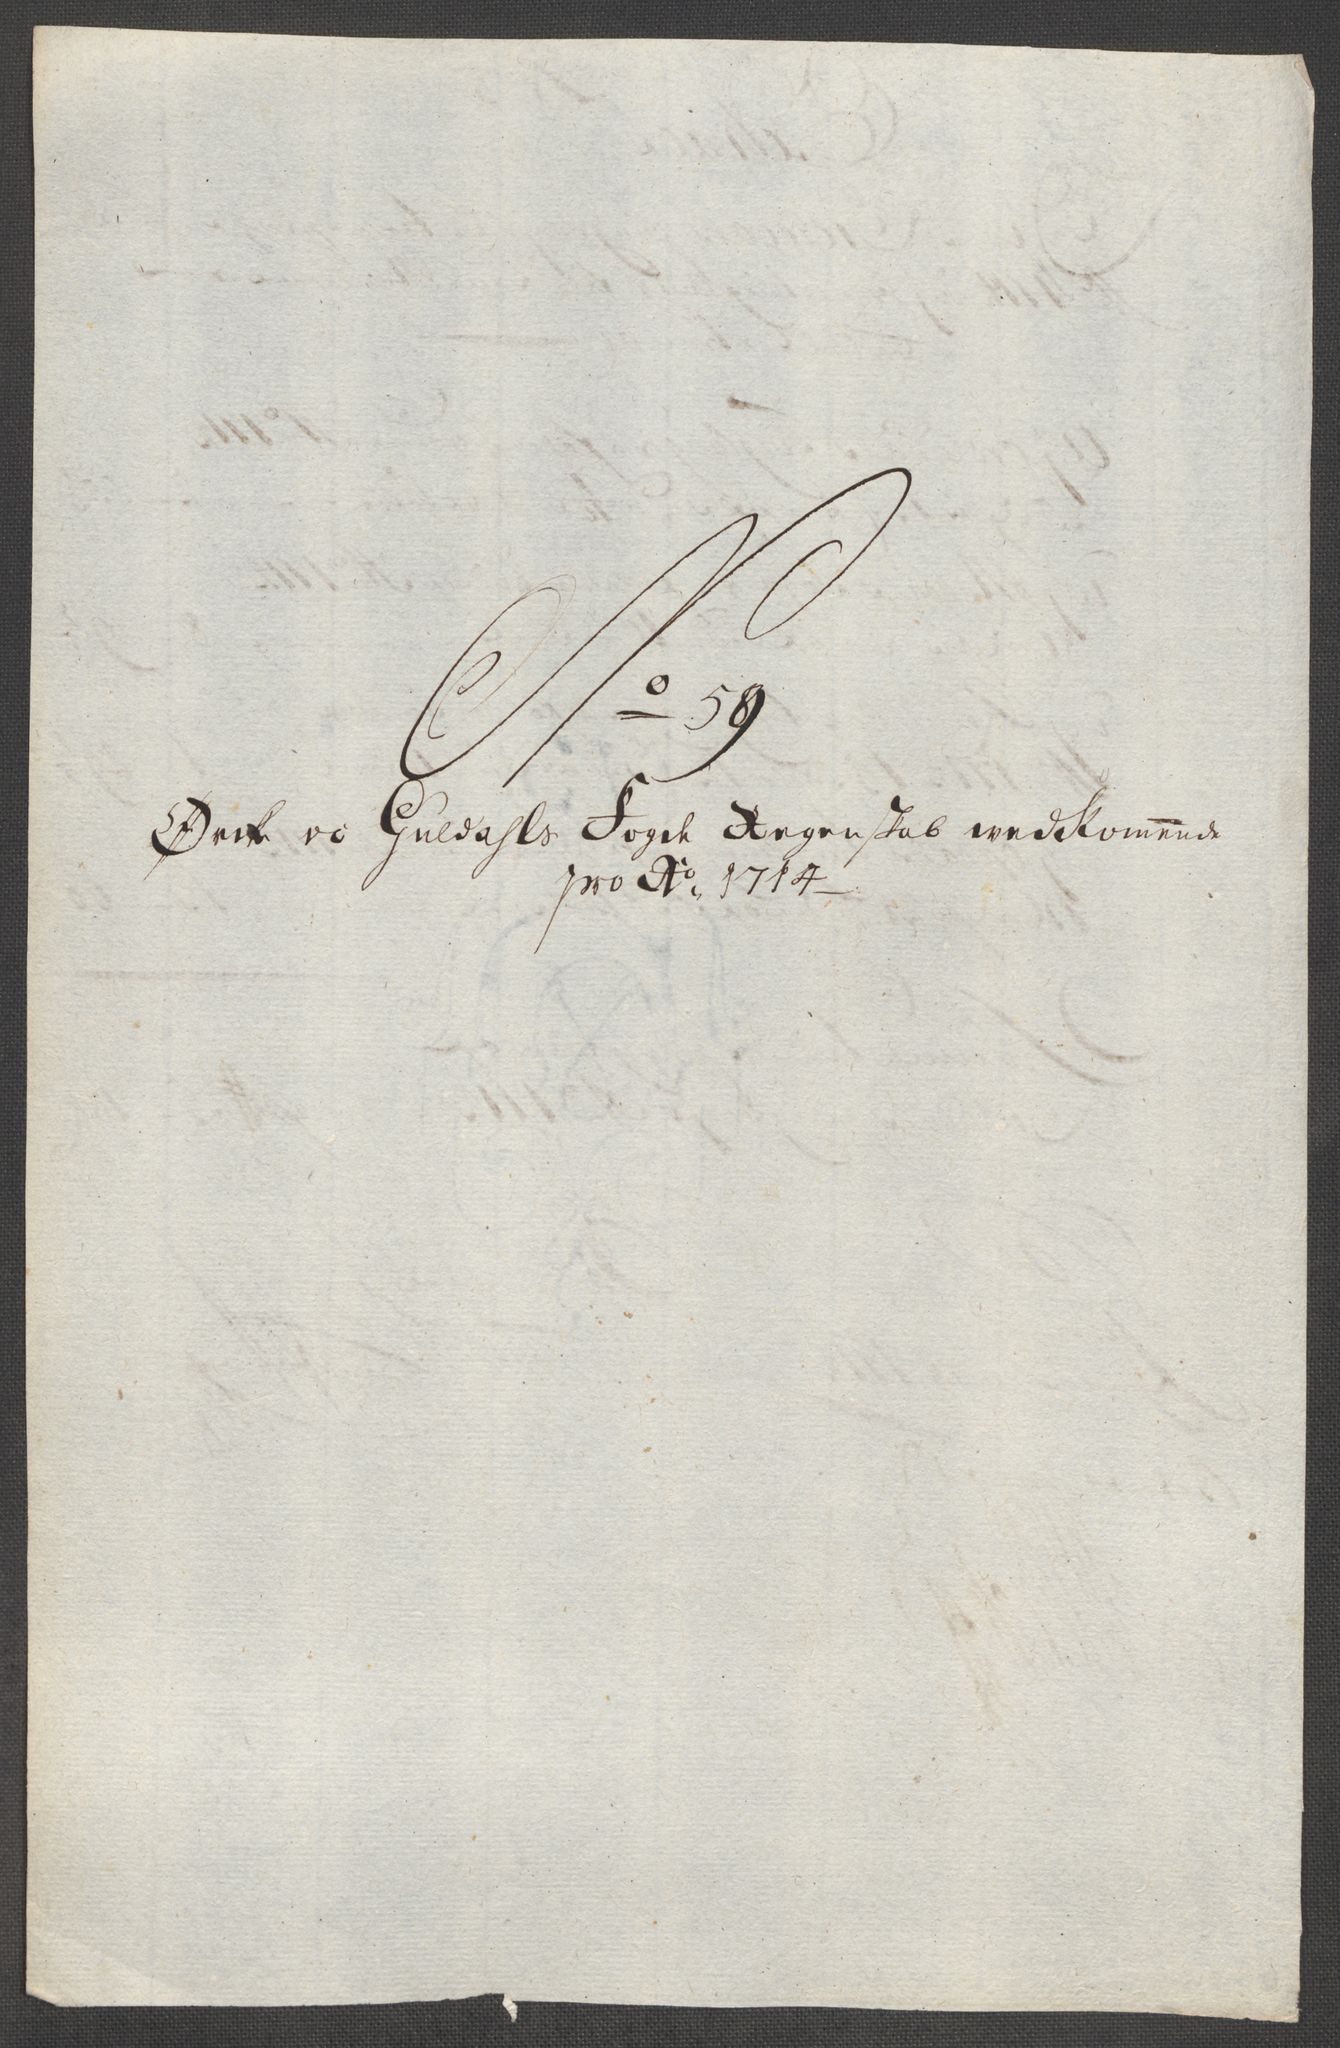 No 59
Ørke og Guldahls Fogde Regenskab wedkom̄ende
pro Ao. 1714